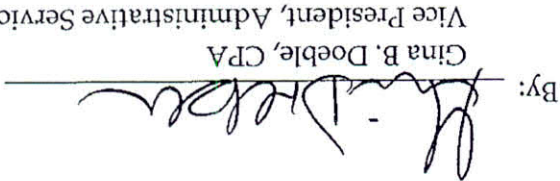 By:
Gina B. Doeble, CPA
Vice President, Administrative Servic